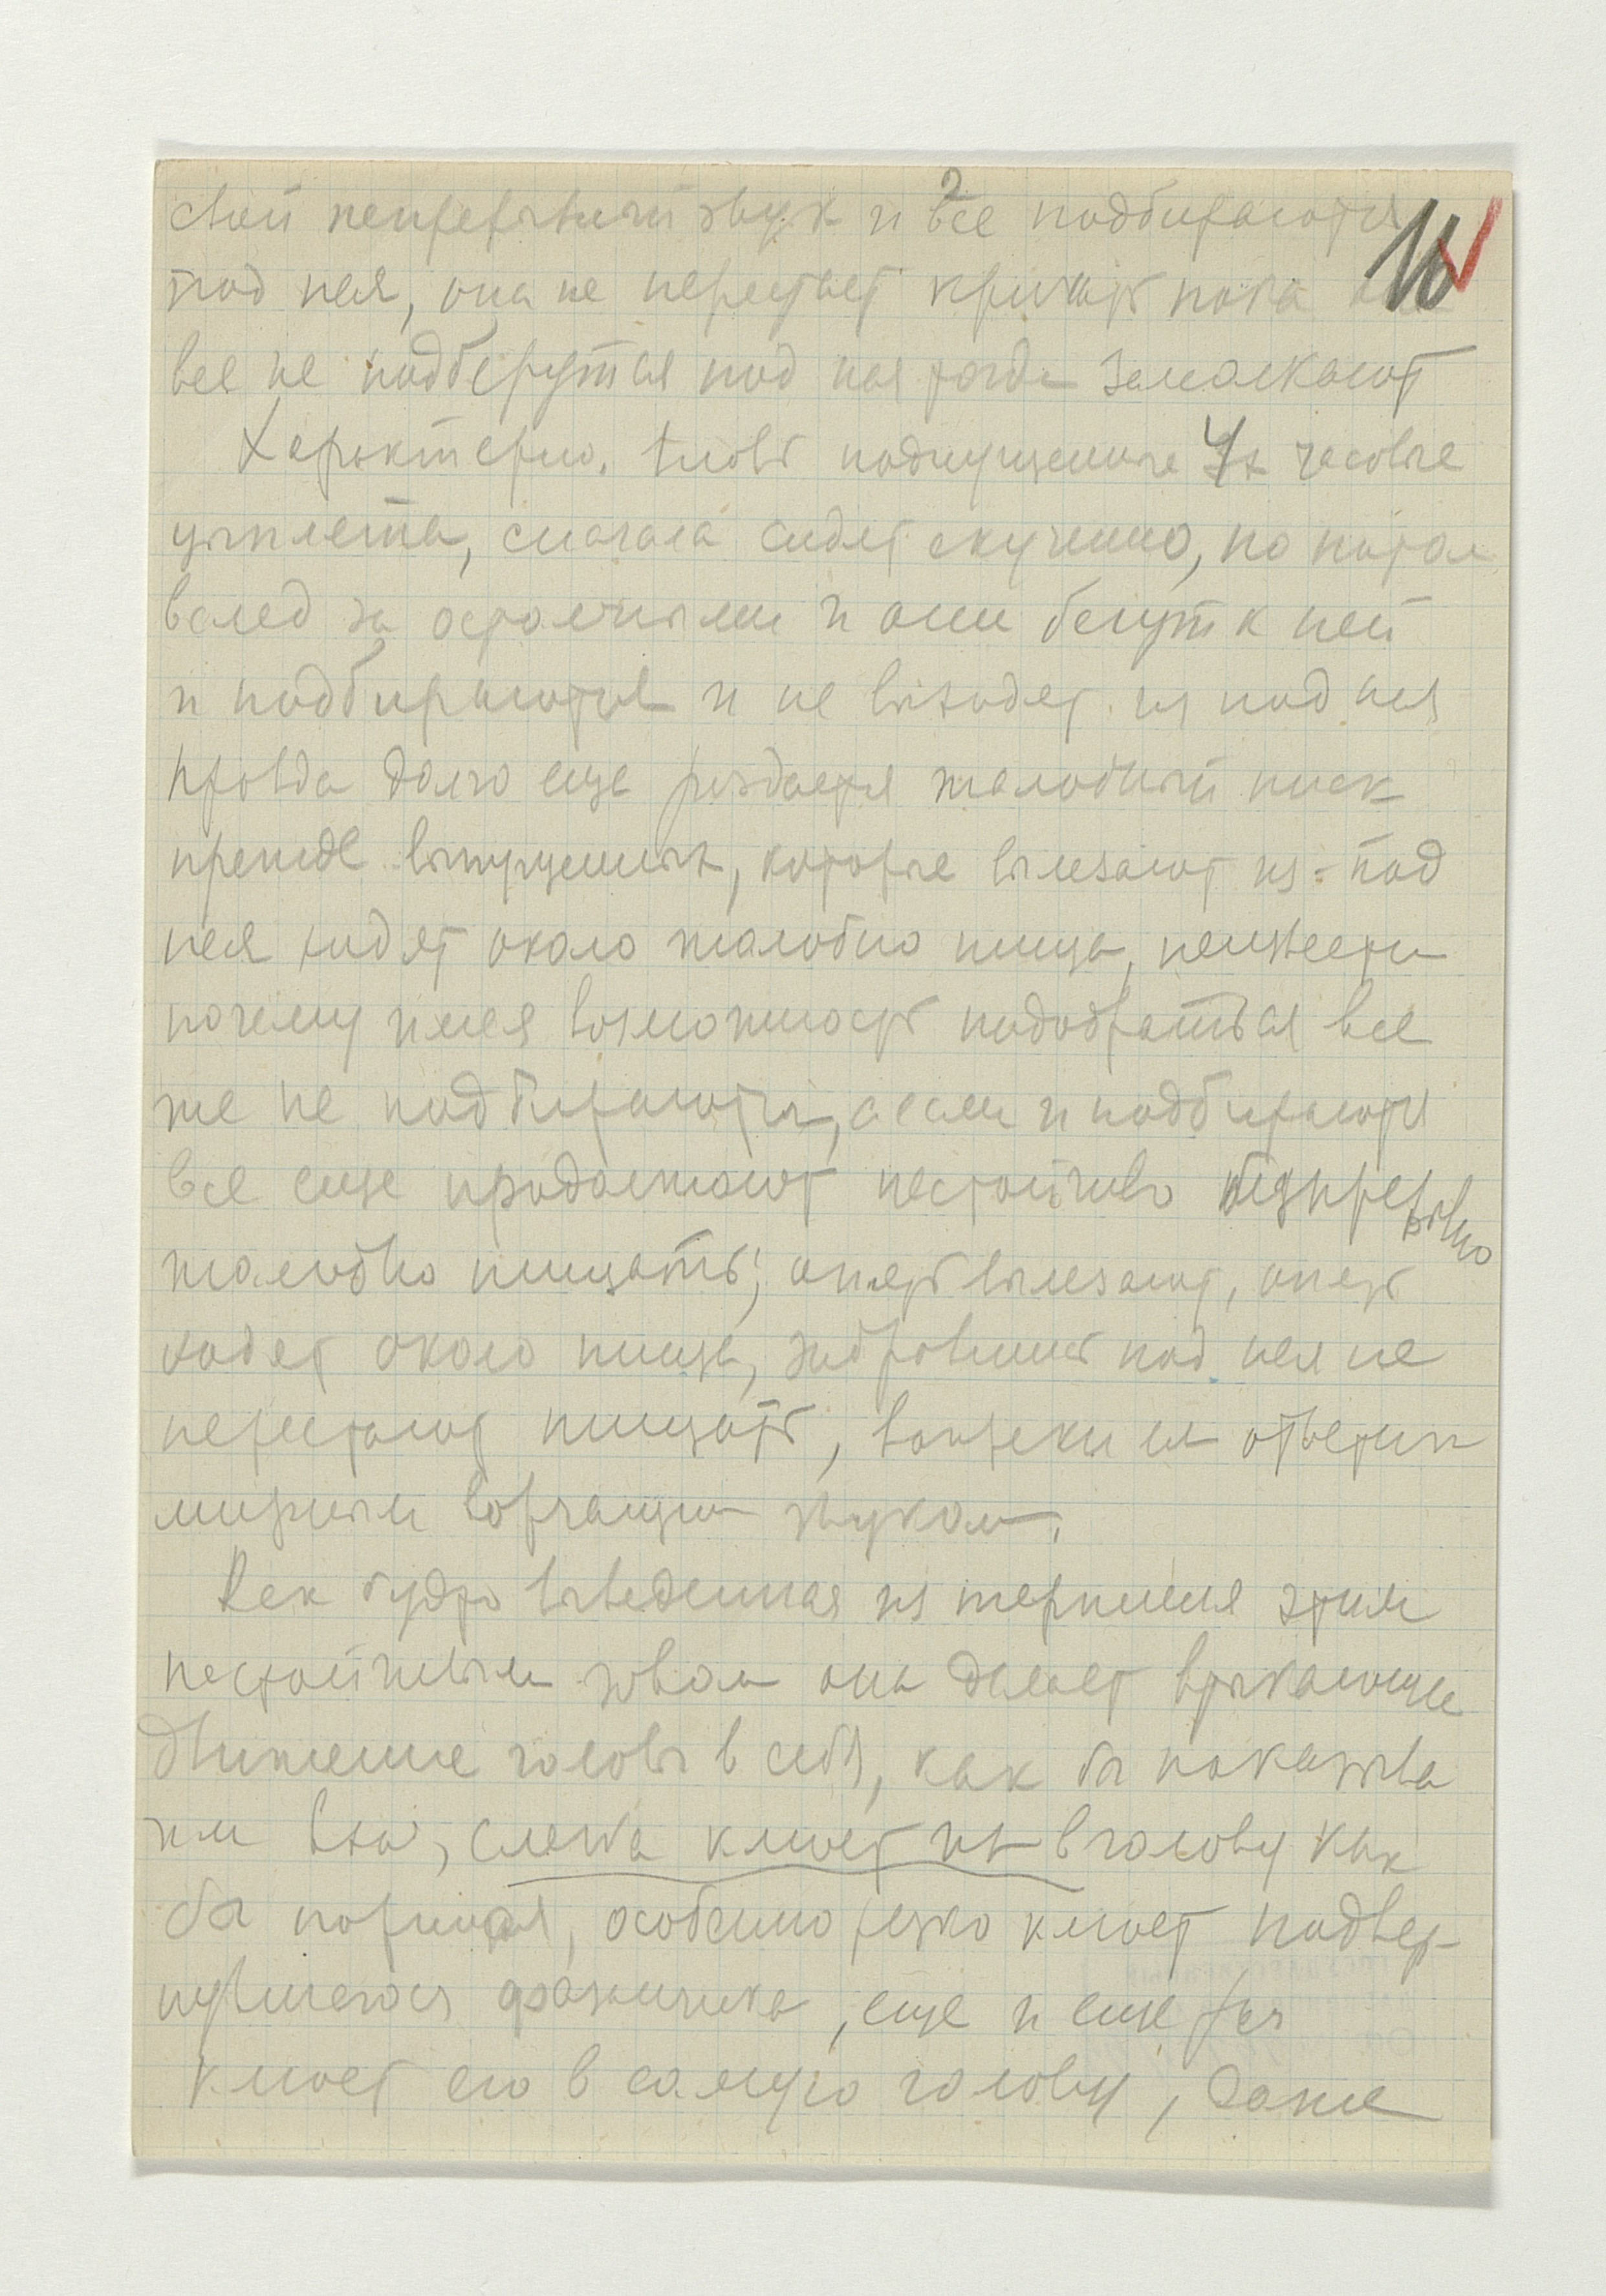 2
16
свой непрерывный звук и все подбираются
под нея, она не перестает кричать пока
все не подберутся под нея тогда замолкают
Характерно, вновь подпущенные 4х часовые
цыплята, сначала сидят скученно, но потом
вслед за остальными и они бегут к ней
и подбираются и не выходят из под нея
правда долго еще раздается жалобный писк
прежде выпущенных, которые вылезают из-под
нея ходят около жалобно пища, неизвестно
почему имея возможность подобраться все
же не подбираются, а если и подбираются
все еще продолжают настойчиво безпрерывно
жалобно пищать; опять вылезают, опять
ходят около пища, забравшись под нея не
перестают пищать, вопреки ея ответным
мирным ворчащим звукам.
Как будто выведенная из терпения этим
настойчивым зовом она делает втыкающие
движение головы в себя, как бы показывая
им вход, слегка клюет их в голову как
бы торопя, особенно резко клюет подвер-
нувшегося фазанчика, еще и еще раз
клюет его в самую голову, даже